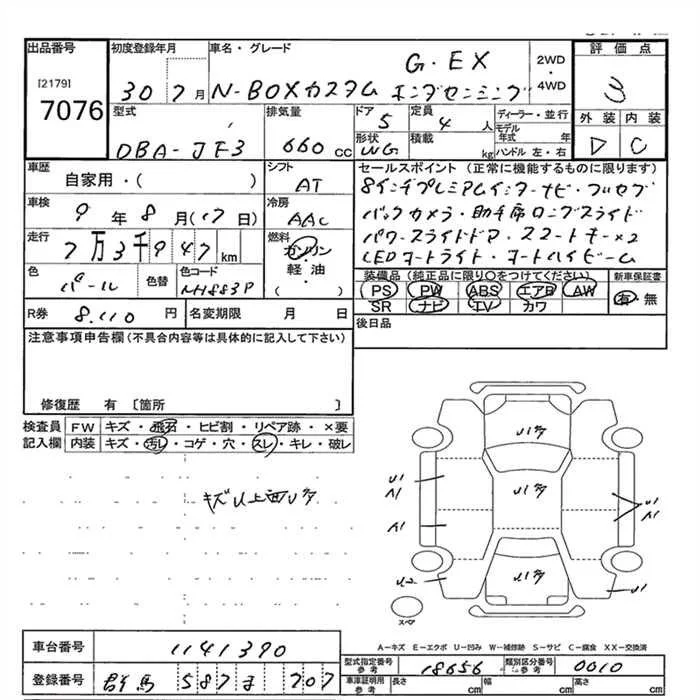 出品番号
[2179]
7076
初度登録年月
30 7月
車名・グレード
G・EX
N-BOXカスタム ホンダセンシング
2WD
・
4WD
評価点
3
外装 内装
D C
型式
DBA-JF3
排気量
660 CC
ドア
5
定員
4 人
形状
WG
積載
kg
ディーラー・並行
モデル年式 年
ハンドル 左・右
車歴
自家用・( )
シフト
AT
車検
9年8月(17日)
冷房
AAC
走行
7万3千947 km
燃料
ガソリン・軽油・( )
色
パール
色替
色コード
NH883P
R券 8.110 円
名変期限 月 日
セールスポイント(正常に機能するものに限ります)
8インチプレミアムインターナビ・フルセグ
バックカメラ・助手席ロングスライド
パワースライドドア・スマートキー×2
LEDオートライト・オートハイビーム
装備品(純正品に限り○をつけてください)
新車保証書
PS PW ABS エアB AW
SR ナビ TV カワ
有・無
後日品
注意事項申告欄(不具合内容等は具体的に記入して下さい)
修復歴 有 [箇所 ]
検査員記入欄
FW キズ・飛石・ヒビ割・リペア跡・×要
内装 キズ・汚れ・コゲ・穴・スレ・キレ・破レ
キズU上面U
U1
A1
A1
U2
U1
A1
U1
スペア
A-キズ E-エクボ U-凹み W-補修跡 S-サビ C-腐食 XX-交換済
車台番号 1141390
登録番号 群馬 587 ま 707
型式指定番号 参考 18656
類別区分番号 参考 0010
車庫証明用 参考
長さ cm
幅 cm
高さ cm